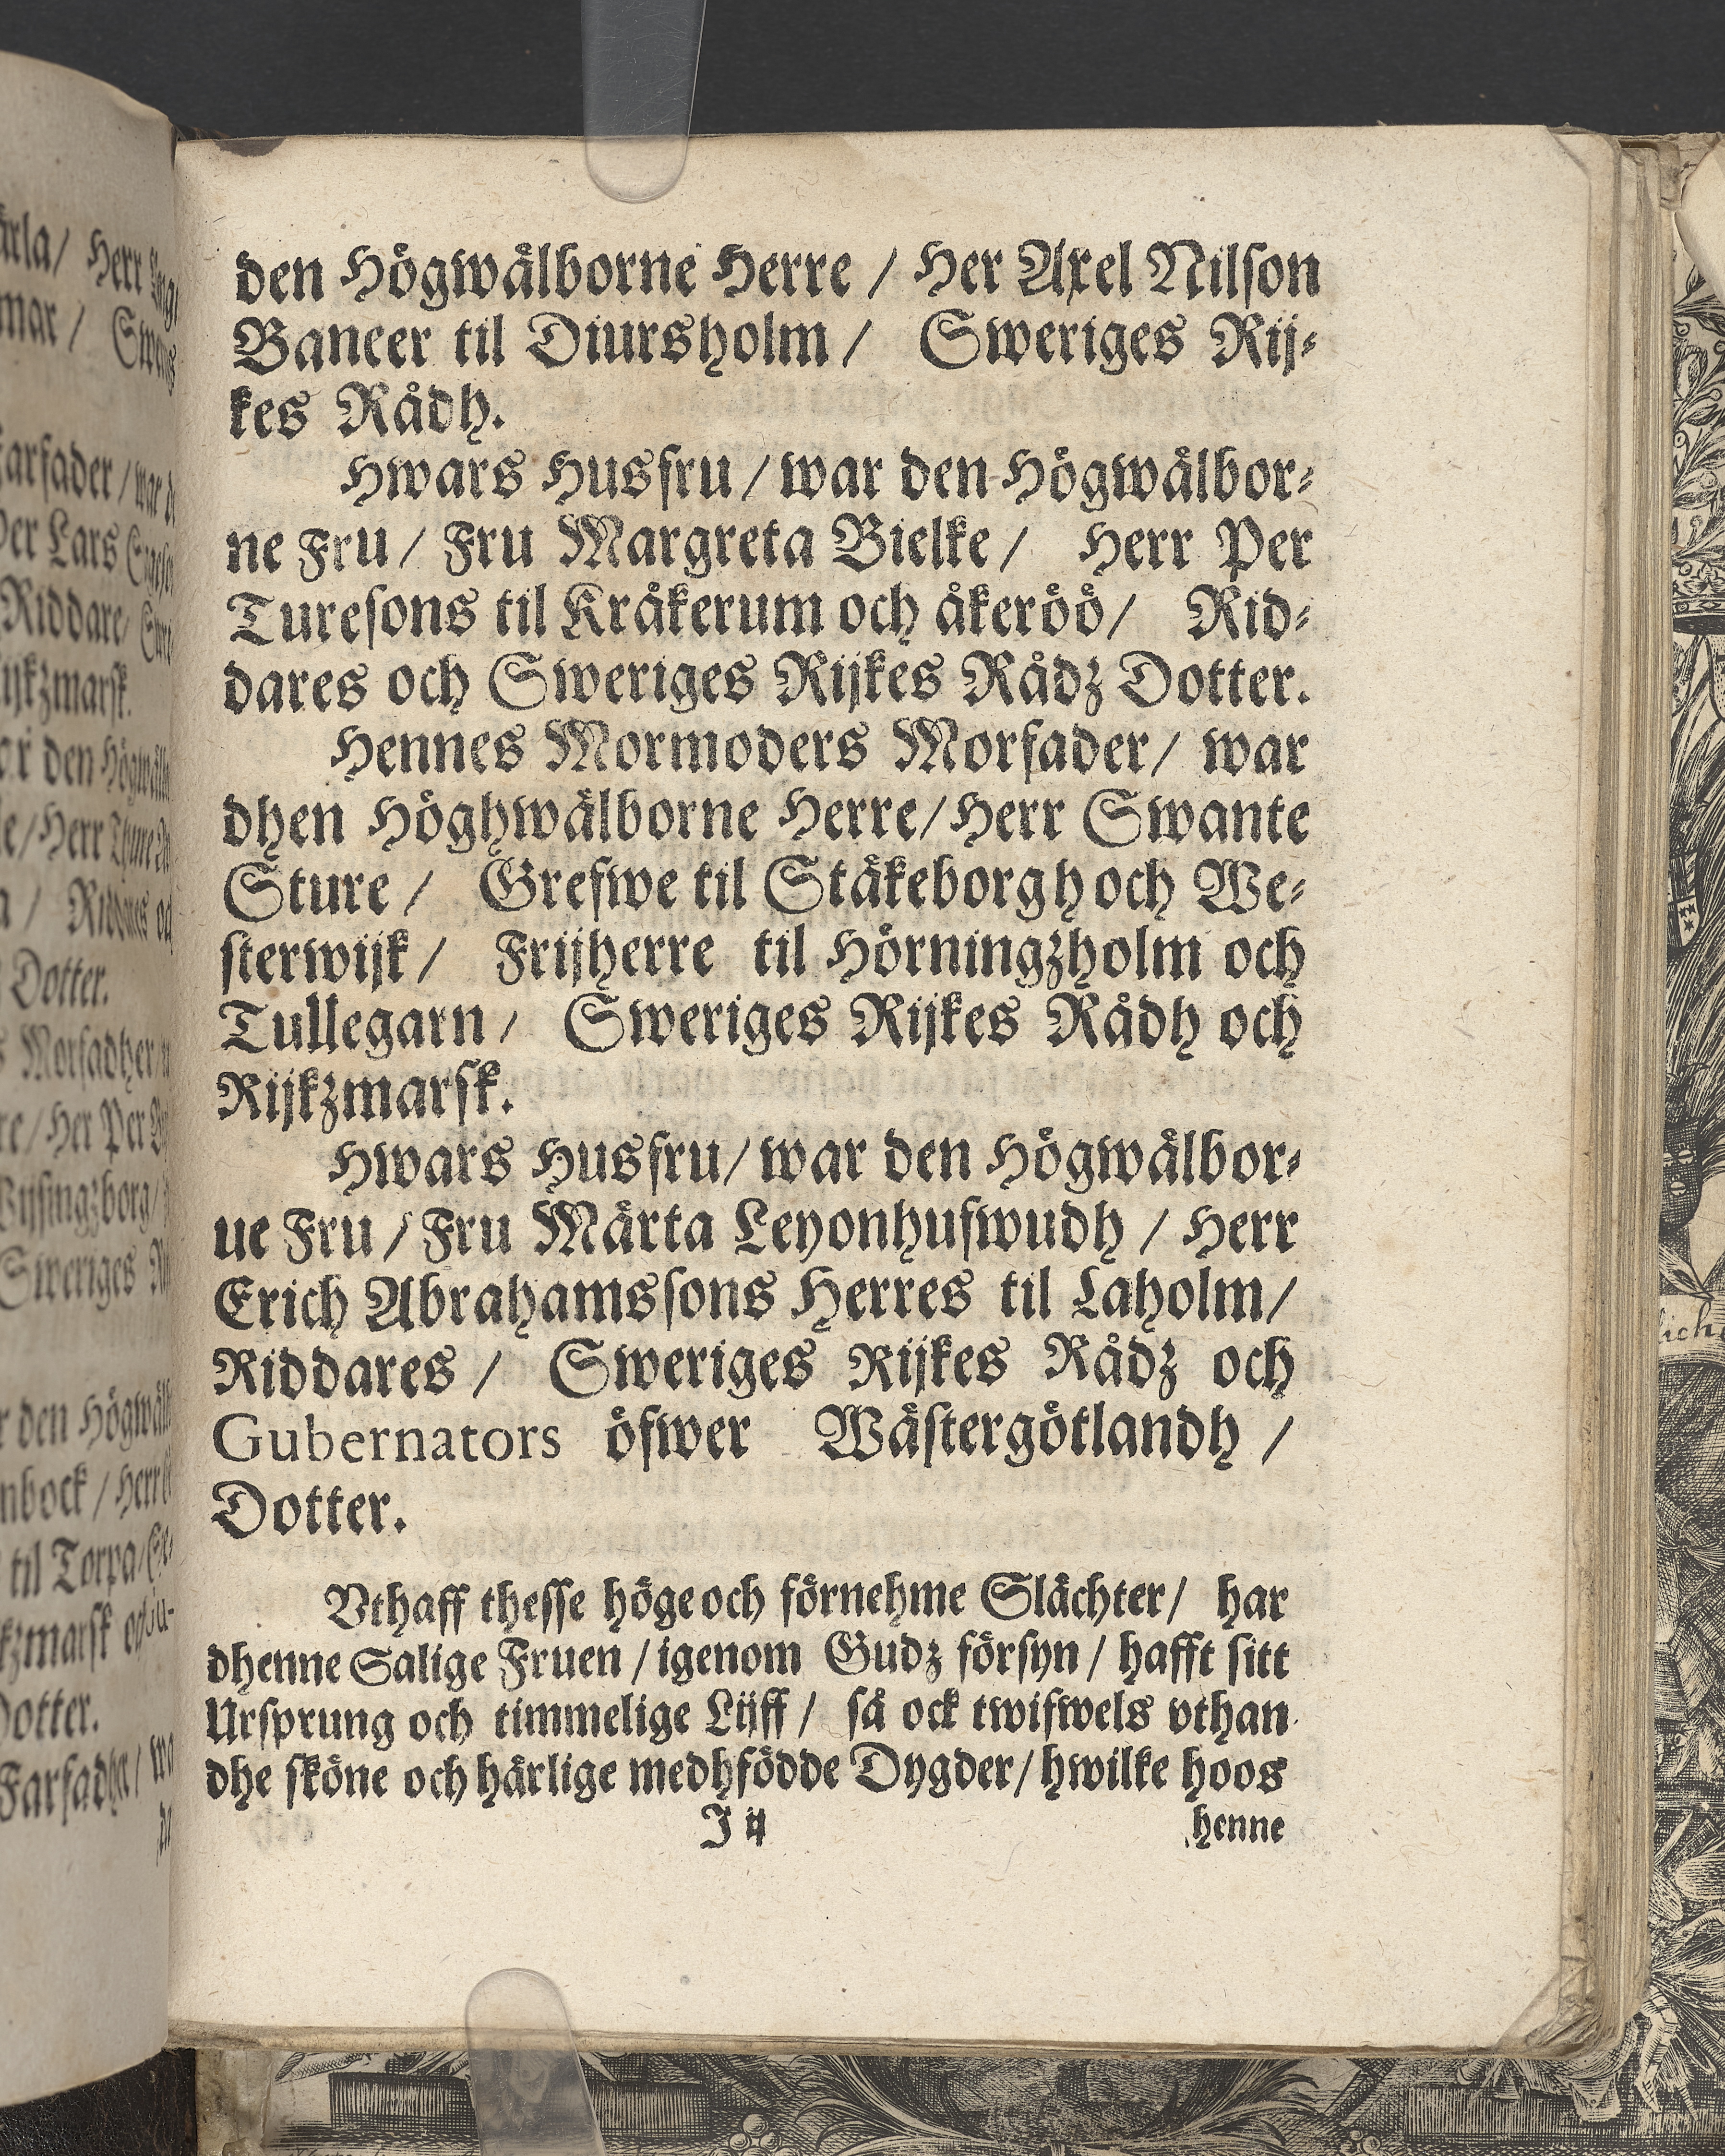 den Högwälborne Herre / Her Axel Nilson
Baneer til Diursholm / Sweriges Rij-
kes Rådh.
Hwars Husfru / war den Högwälbor-
ne Fru / Fru Margreta Bielke / Herr Per
Turesons til Kråkerum och åkeröö / Rid-
dares och Sweriges Rijkes Rådz Dotter.
Hennes Mormoders Morfader / war
dhen Höghwälborne Herre / Herr Swante
Sture / Grefwe til Stäkeborgh och We-
sterwijk / Frijherre til Hörningzholm och
Tullegarn / Sweriges Rijkes Rådh och
Rijkzmarsk.
Hwars Husfru / war den Högwälbor-
ue Fru / Fru Märta Leyonhufwudh / Herr
Erich Abrahamssons Herres til Laholm /
Riddares / Sweriges Rijkes Rådz och
Gubernators öfwer Wästergötlandh /
Dotter.
Vthaff thesse höge och förnehme Slächter / har
dhenne Salige Fruen / igenom Gudz försyn / hafft sitt
Ursprung och timmelige Lijff / så ock twifwels vthan
dhe sköne och härlige medhfödde Dygder / hwilke hoos
J ij
henne